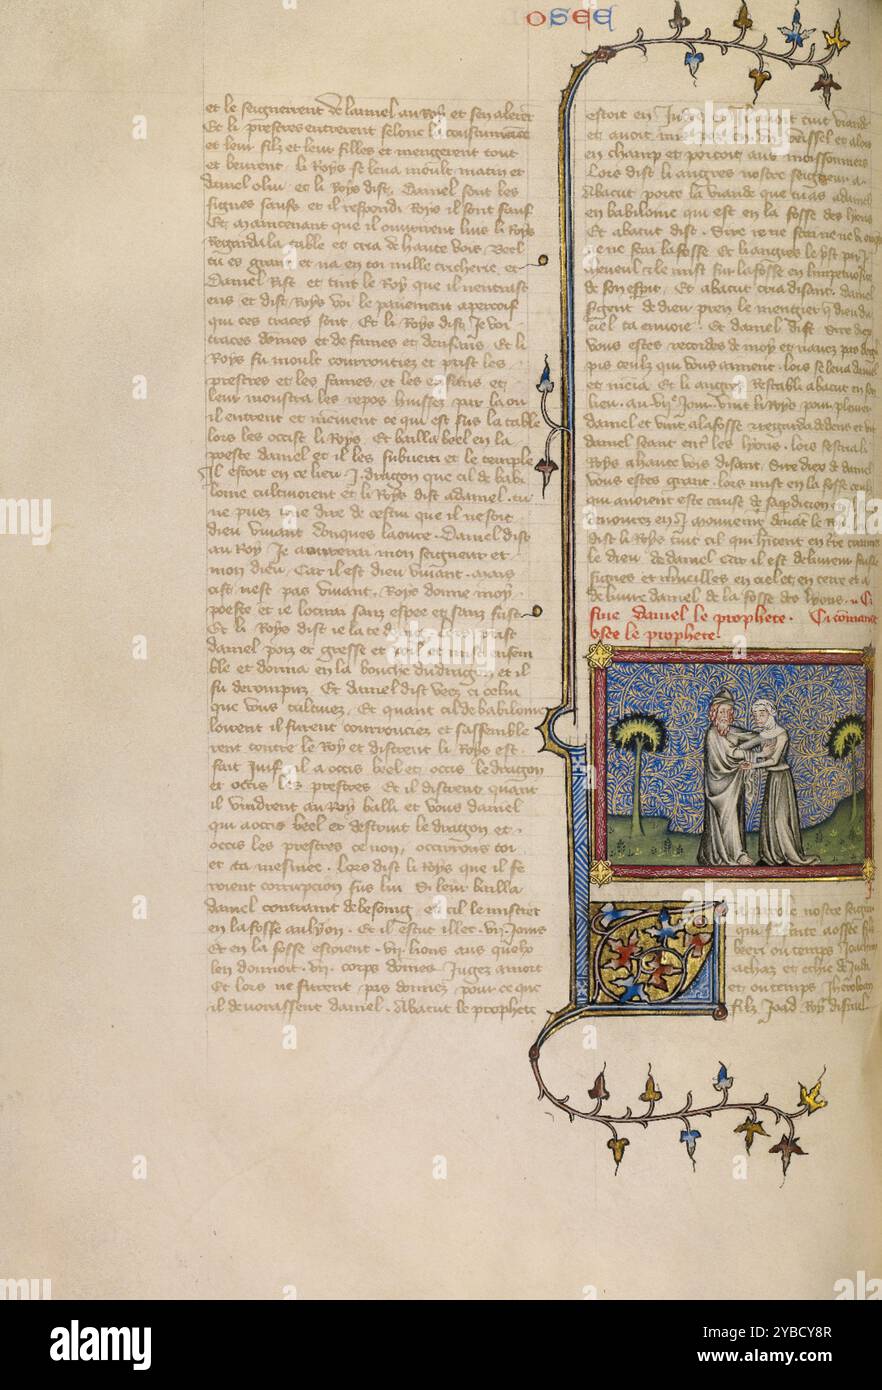 OSEE
et le seignerent de lanniel au Roy et sen alerent
Et li prestres entrerent selonc la coustumance
et leur filz et leur filles et mengerent tout
et beurent. li Roys se leva moult matin et
daniel o lui. et li Roys dist. Daniel sont les
signes saufs et il respondi Roys il sont sauf
Et maintenant que il ouvrirent luis li Roys
Regarda la table et cria de haute vois. Beel
tu es grant et na en toi nulle tricherie. et
Daniel Rist et tint le Roy que il nentrast
ens et dist. Roys voi le paviement apercoif
qui ces traces sont. Et li Roys dist. Je voi
traces domes et de fames et denfans. Et li
Roys fu moult courrouciez et prist les
prestres et les fames. et les enfans et
leur monstra les repos huisses par la ou
il entrent et menient ce qui est sus la table
lors les occist li Roys. Et bailla beel en la
poeste daniel et il les subverti et le temple
Il estoit en ce lieu .j. dragon que cil de babi
loine cultivoient et li Roys dist a daniel. tu
ne puez mie dire de cestui que il ne soit
dieu vivant donques laoure. Daniel dist
au Roy Je aourerai mon seigneur et
mon dieu. Car il est dieu vivant. mais
cist nest pas vivant. Roys donne moy
poeste et je locirai sanz espee et sanz fust
Et li Roys dist je la te donne. lors prist
daniel poiz et gresse et poil et mist ensem
ble et donna en la bouche du dragon et il
fu derompuz. Et daniel dist veez ci celui
que vous cultivez. Et quant cil de babiloine
loirent il furent courrouciez et sassemble
rent contre le Roy et distrent li Roys est
fait Juif. il a occis beel et occis le dragon
et occis les prestres Et il distrent quant
il vindrent au Roy balli et vous daniel
qui a occis beel et destruit le dragon et
occis les prestres ce non, occirrons toi
et ta mesniee. lors dist li Roys que il fe
roient corrupcion sus lui Si leur bailla
daniel contraint de besoing et cil le mistret
en la fosse au lyon. Et il estut illec .vij. Jours
Et en la fosse estoient .vij. lions aus quelx
len donnoit .vij. corps domes Jugez a mort
Et lors ne furent pas donnez pour ce que
il devorassent daniel. Abacut le prophete
estoit en cuit viande
et avoit mis pain en .un veissel et aloit
en champ et portoit aus moissonneurs
Lors dist li angres nostre seigneur a
Abacut porte la viande que tu as a daniel
en babiloine qui est en la fosse des lyons
Et abacut dist. Sire je ne
ne ne sai la fosse Et li angres le prist par
cheveul et le mist sur la fosse en
de son esperit. Et abacut cria disant. daniel
sergent de dieu pren le mengier que dieu du
ciel ta envoie. Et daniel dist Sire diex
vous estes recordes de moy et navez pas deguerpi
ceulz qui vous aiment. lors se leva daniel
et menia Et li angres Restabli abacut en son
lieu. au .vij.e Jour vint li Roys pour plourer
daniel et vint a la fosse et regarda dedens et vit
daniel seant entre les lyons. lors sescria li
Roys a haute vois disant. Sire diex de daniel
vous estes grant. lors mist en la fosse ceulx
qui avoient este cause de sa perdicion et
devourez en .j. moument devant le Roy
dist li Roys tuit cil qui habitent en terre
le dieu de daniel car il est delivreur
signes et merveilles en ciel et en terre et a
delivre daniel de la fosse des lyons. Ci
fine daniel le prophete. Ci commence
osee le prophete.
la parole nostre seigneur
qui fu faite a osee filz
beeri ou temps Joachan
achaz et ezhie de Juda
et ou temps Jheroboan
filz Joad Roy disrael
alamy
Image ID: 2YBCY8R
www.alamy.com